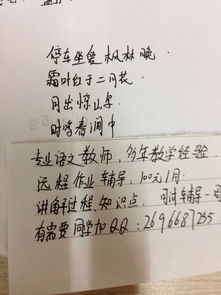 停车坐爱枫林晚.
霜叶红于二月花
月出惊山鸟.
时鸣春涧中
专业语文教师，多年教学经验
远程作业辅导：100元1月.
讲解过程、知识点.
有需要同学加QQ：2696681255